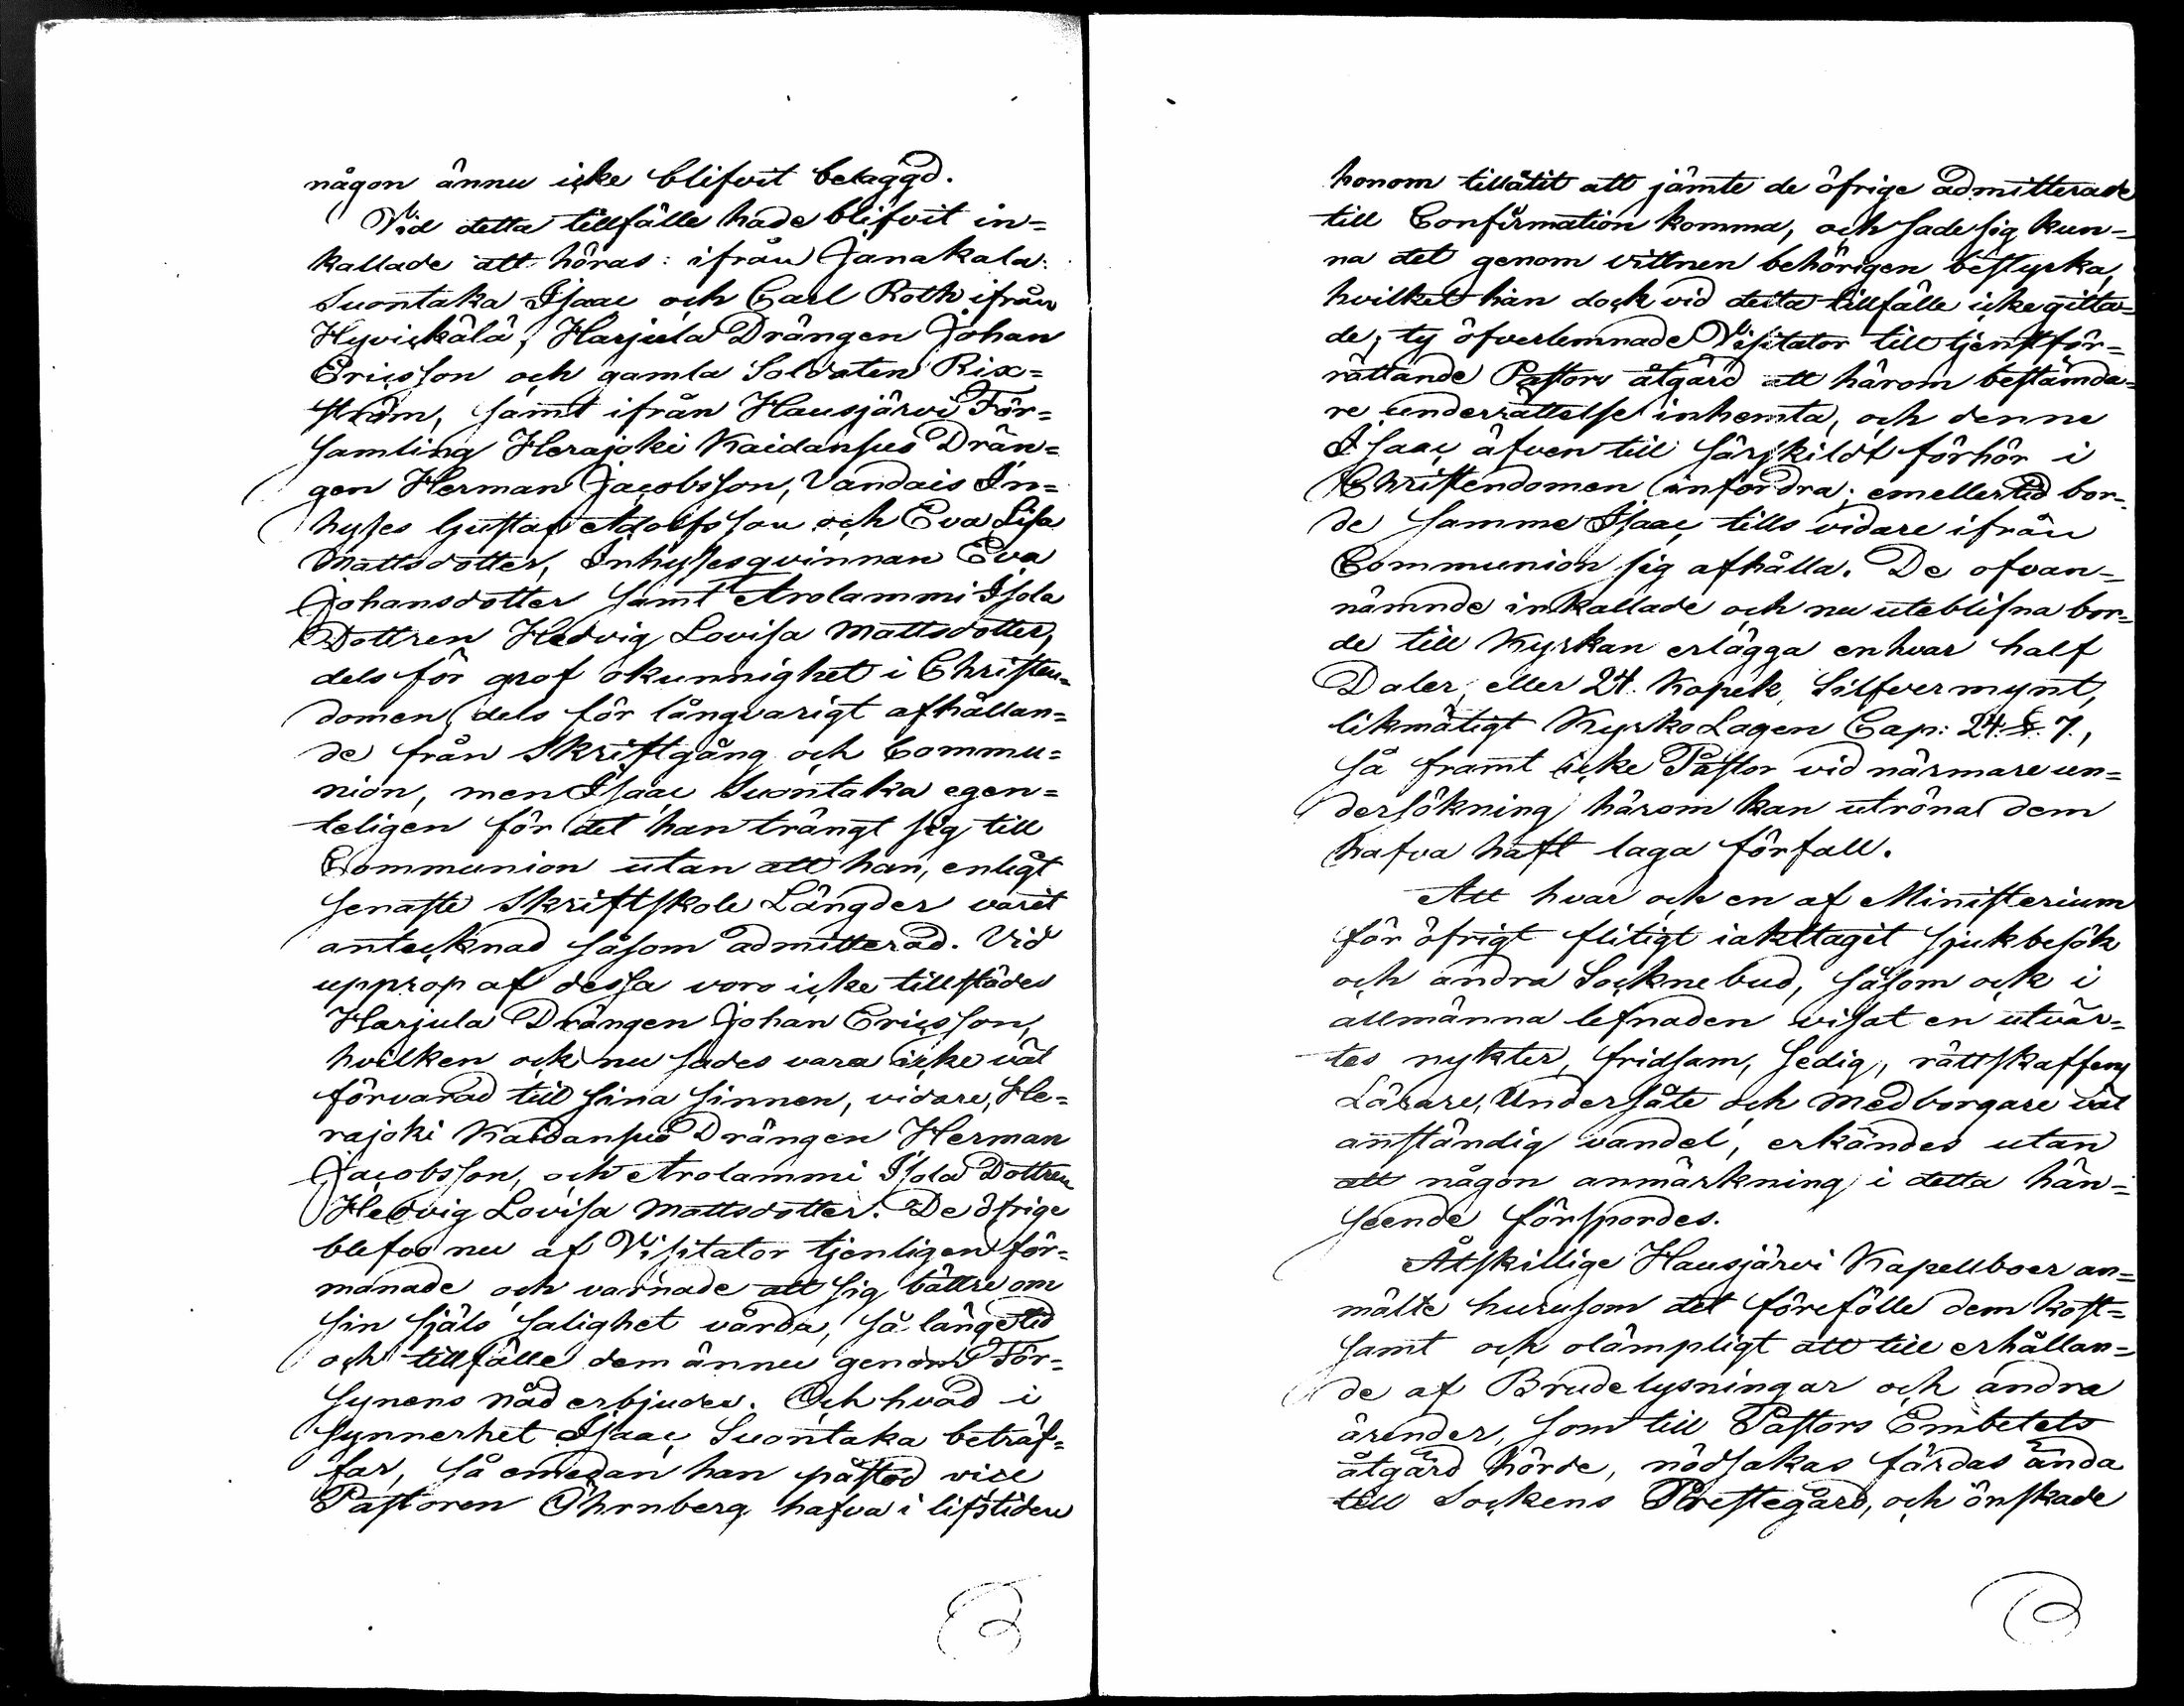 någon ännu icke blifvit belaggd.
Vid detta tillfälle hade blifvit in=
kallade att höras: ifrån Janakala:
Suontaka Isaac och Carl Roth ifrån
Hyvickälä, Harjula Drängen Johan
Ericsson och gamla Soldaten Rix=
ström, samt ifrån Hausjärvi För=
samling Herajoki Kaidansuo Drän=
gen Herman Jacobsson, Vandais In=
hyses Gustaf Adolfsson och Eva Lisa
Mattsdotter, Inhysesqvinnan Eva
Johansdotter samt Arolammi Isola
Dottren Hedvig Lovisa Mattsdotter,
dels för grof okunnighet i Christen=
domen, dels för långvarigt afhållan=
de från Skriftgång och Commu=
nion, men Isaac Suontaka egen=
teligen för det han trängt sig till
Communion utan att han, enligt
senaste Skriftskole Längder varit
antecknad såsom admitterad. Vid
upprop af dessa voro icke tillstädes
Harjula Drängen Johan Ericsson,
hvilken ock nu sades vara icke väl
förvarad till sina sinnen, vidare, He=
rajoki Kaidansuo Drängen Herman
Jacobsson, och Arolammi Isola Dottren
Hedvig Lovisa Mattsdotter. De öfrige
blefvo nu af Visitator tjenligen för=
manade och varnade att sig bättre om
sin själs salighet vårda, så länge tid
och tillfälle dem ännu genom För=
synens nåd erbjudes. Och hvad i
synnerhet Isaac Suontaka beträf=
far, så emedan han påstod vice
Pastoren Öhrnberg hafva i lifstiden
honom tillåtit att jämte de öfrige admitterade
till Confirmation komma, och sade sig kun=
na det genom vittnen behörigen bestyrka,
hvilket han dock vid detta tillfälle icke gitta=
de; ty öfverlemnade Visitator till tjenstför=
rättande Pastors åtgärd att härom bestämda=
re underrättelse inhemta, och denne
Isaac äfven till särskildt förhör i
Christendomen infordra; emellertid bor=
de samme Isaac tills vidare ifrån
Communion sig afhålla. De ofvan=
nämnde inkallade och nu uteblifna bor=
de till Kyrkan erlägga enhvar half
Daler, eller 24. Kopek, Silfvermynt,
likmätigt Kyrko Lagen Cap: 24. §. 7.,
så framt icke Pastor vid närmare un=
dersökning härom kan utröna dem
hafva haft laga förfall.
Att hvar och en af Ministerium
för öfrigt flitigt iakttagit sjukbesök
och andra Socknebud, såsom ock i
allmänna lefnaden visat en utvär=
tes nykter, fridsam, sedig, rättskaffens
Lärare, Undersåte och medborgare väl
anständig vandel, erkändes utan
att någon anmärkning i detta hän=
seende förspordes.
Åtskillige Hausjärvi Kapellboer an=
mälte hurusom det förefölle dem kost=
samt och olämpligt att till erhållan=
de af Brudelysningar och andra
ärender, som till Pastors Embetets
åtgärd hörde, nödsakas färdas ända
till Sockens Prestegård, och önskade